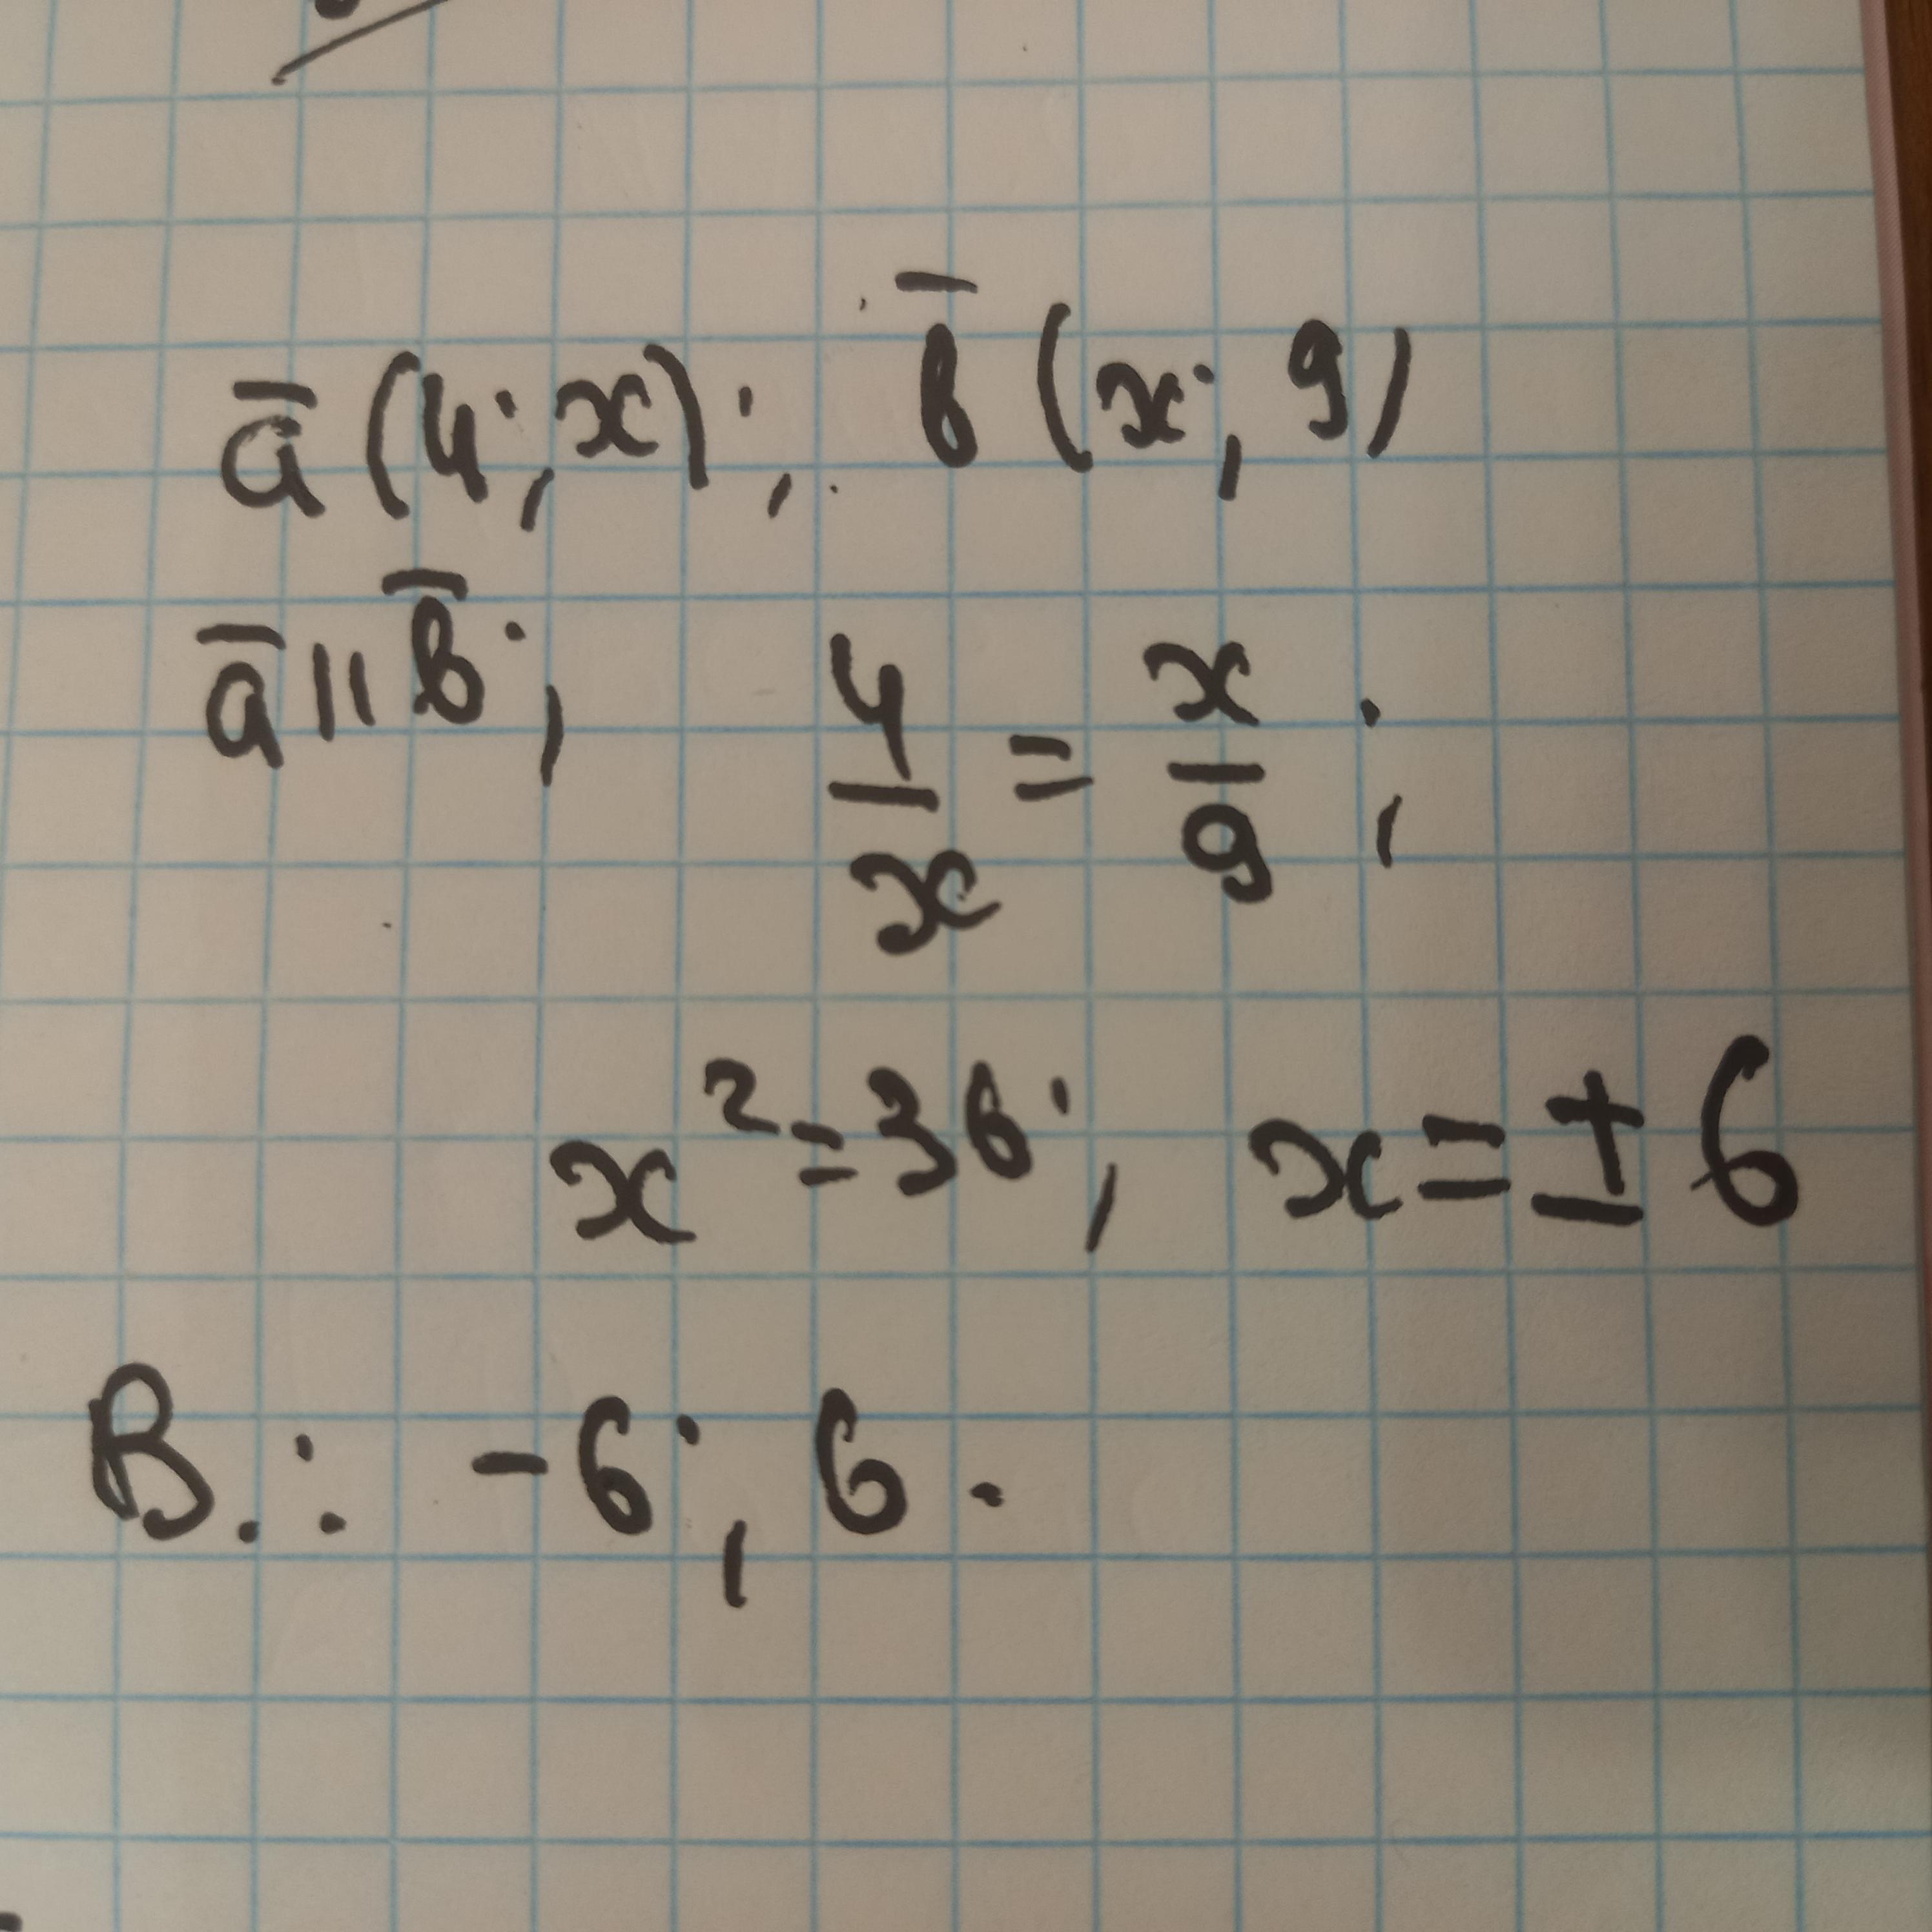 a̅ (4; x); b̅ (x; 9)
a̅ || b̅; 4/x = x/9;
x² = 36; x = ± 6
В.: -6; 6.